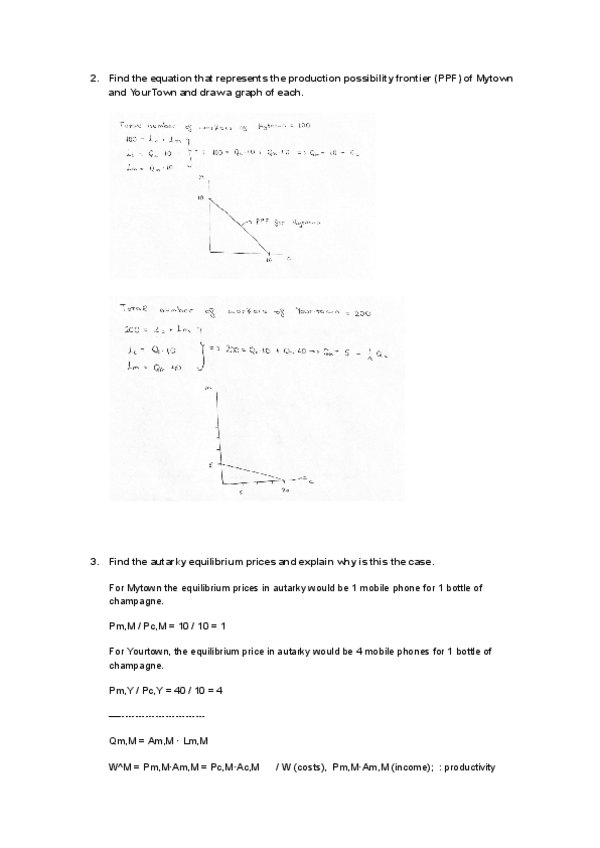 2. Find the equation that represents the production possibility frontier (PPF) of Mytown
and YourTown and draw a graph of each.
Total number of workers of Mytown = 100
100 = Lc + Lm
=> 100 = Qc·10 + Qm·10 => Qm = 10 - Qc
Lc = Qc·10
Lm = Qm·10
m
10
PPF for Mytown
10
c
Total number of workers of Yourtown = 200
200 = Lc + Lm
Lc = Qc·10 => 200 = Qc·10 + Qm·40 => Qm = 5 -
Lm = Qm·40
m
5
5
20
c
3. Find the autarky equilibrium prices and explain why is this the case.
For Mytown the equilibrium prices in autarky would be 1 mobile phone for 1 bottle of
champagne.
Pm,M / Pc,M = 10 / 10 = 1
For Yourtown, the equilibrium price in autarky would be 4 mobile phones for 1 bottle of
champagne.
Pm,Y / Pc,Y = 40 / 10 = 4
—------------------------
Qm,M = Am,M · Lm,M
W^M = Pm,M·Am,M = Pc,M·Ac,M / W (costs), Pm,M·Am,M (income); : productivity